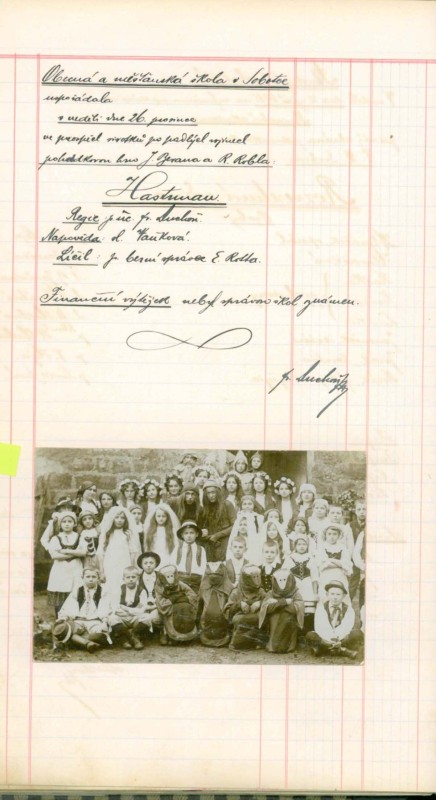 Obecná a měšťanská škola v Sobotce
uspořádala
v neděli dne 26. prosince
ve prospěch sirotků po padlých vojínech
pohádkovou hru J. Berana a R.
Hastrman.
Režie: p. uč. fr. Duchoň.
Napovída: sl. Vaňková.
Líčil: p. berní správce E. Rotta.
Finanční výtěžek nebyl správou škol oznámen.
fr. Duchoň